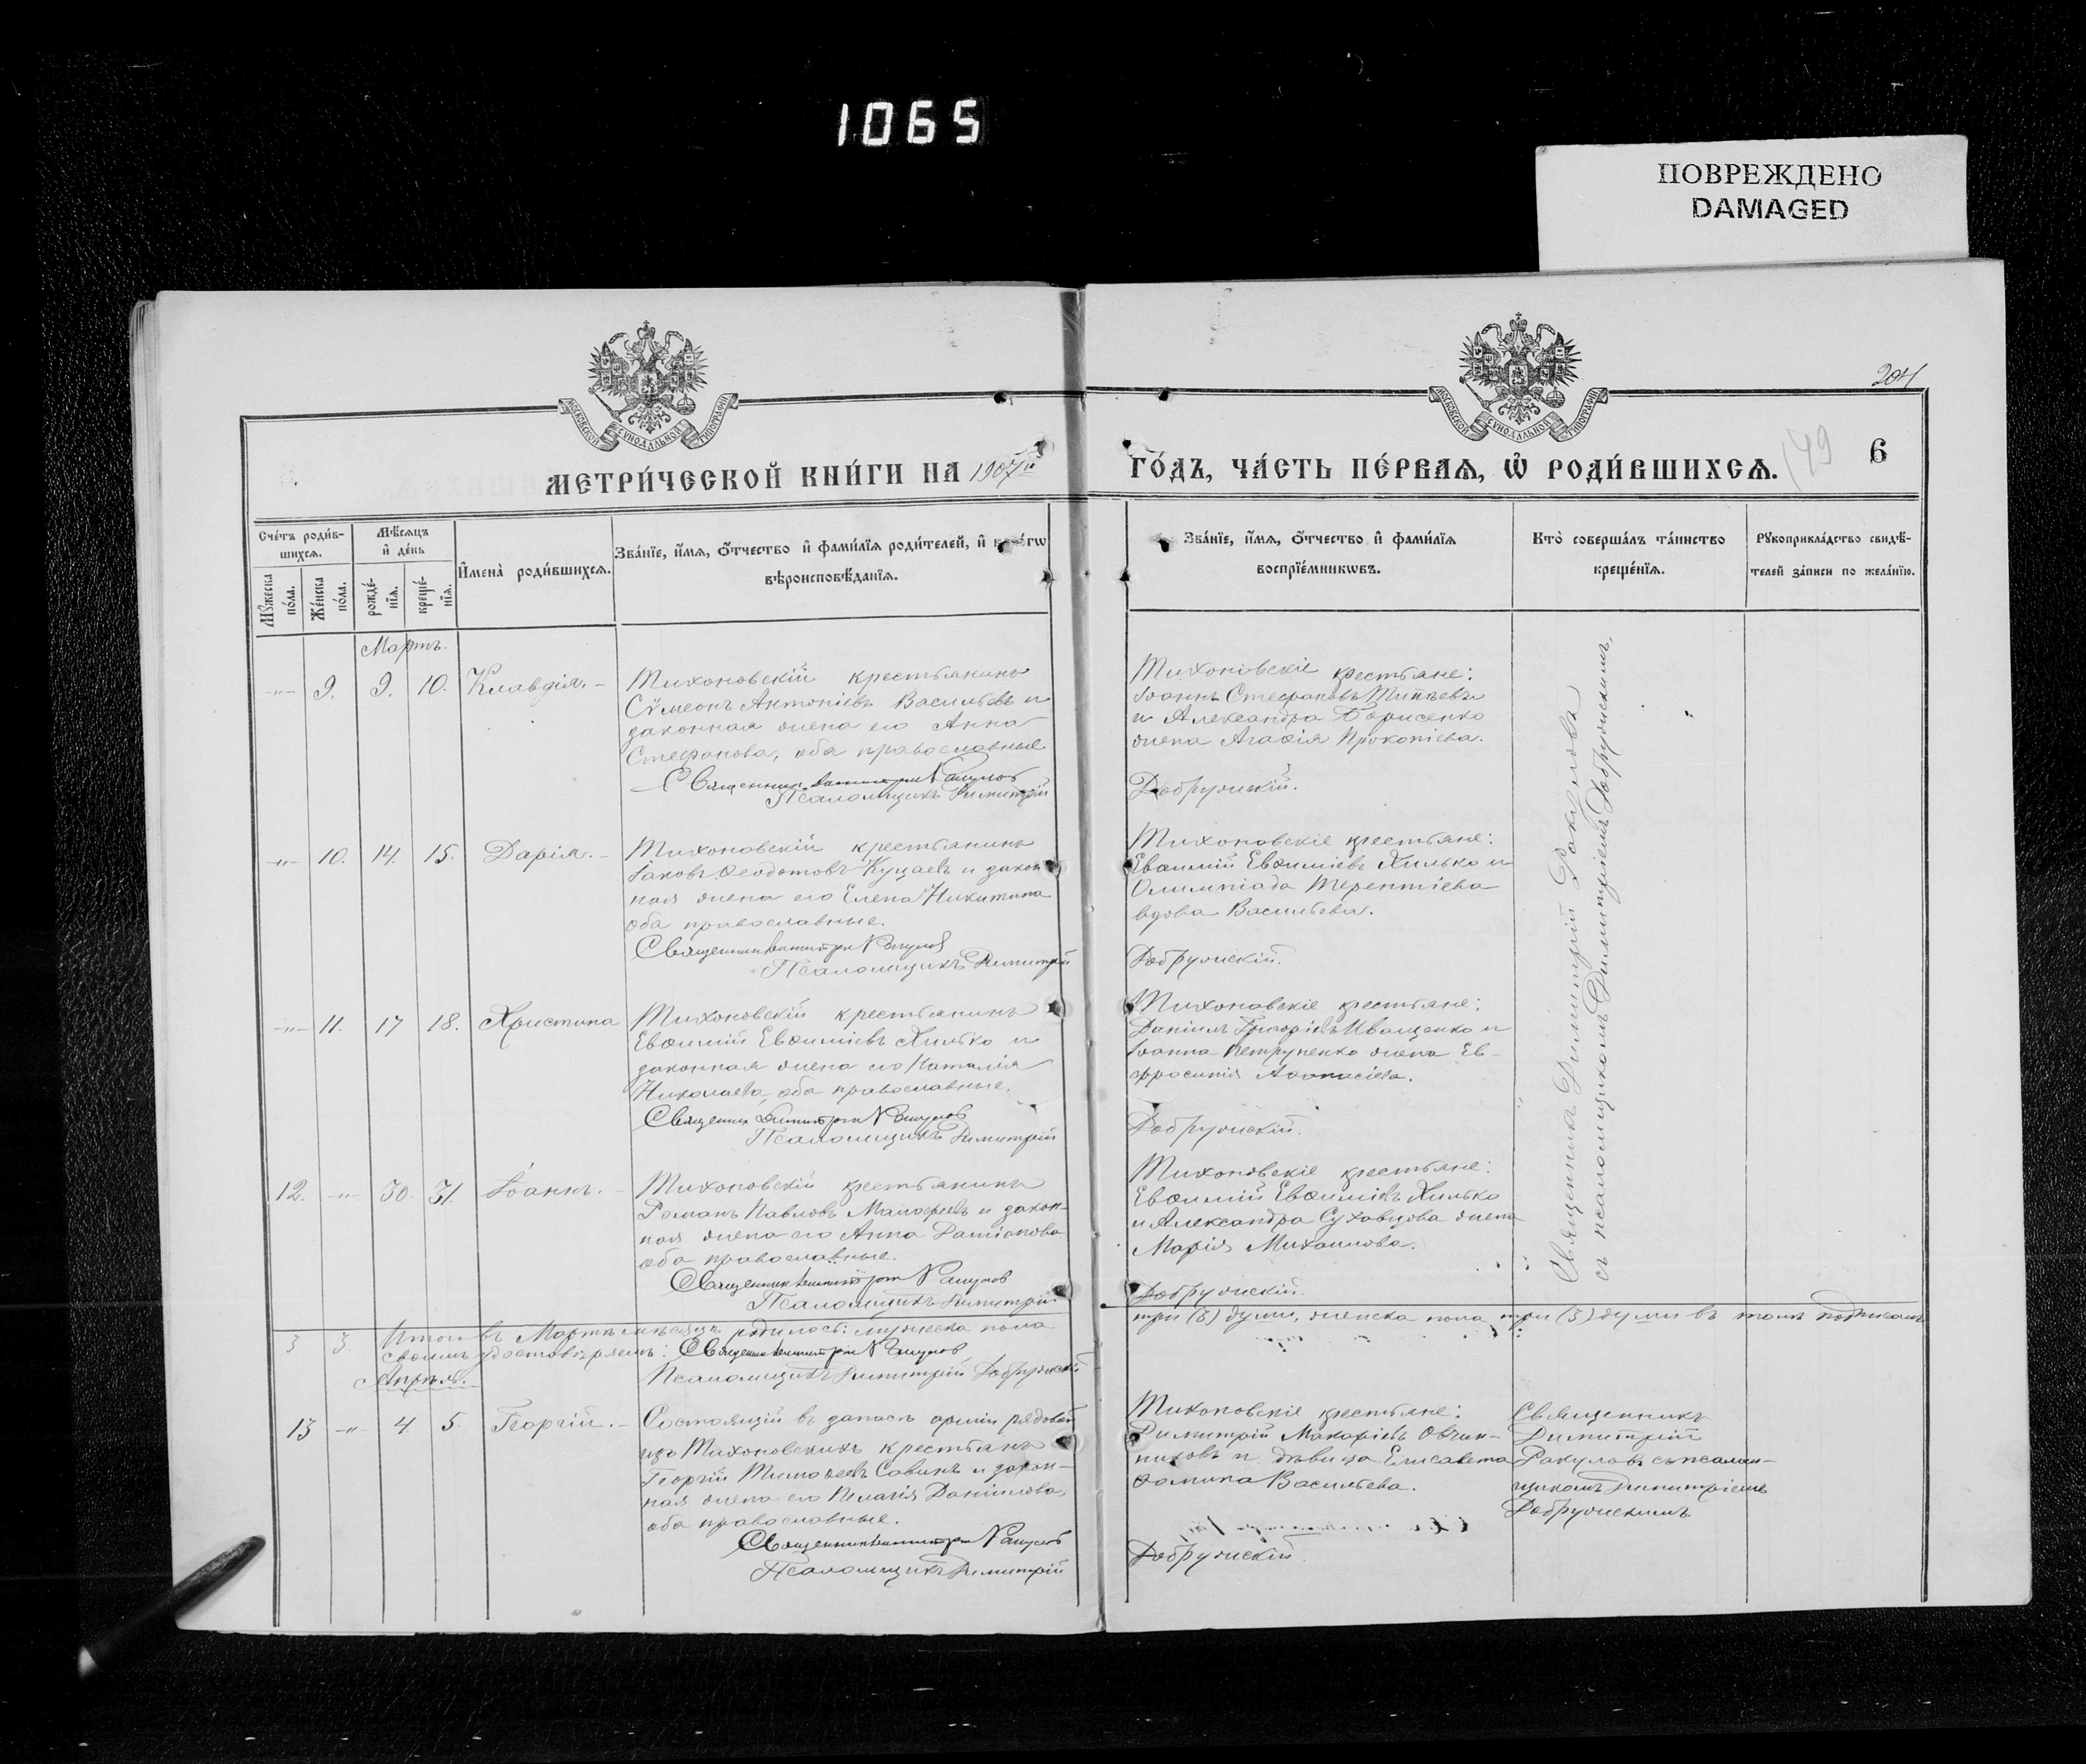 1065
ПОВРЕЖДЕНО
DAMAGED
204
МОСКОВСКОЙ СѴНОДАЛЬНОЙ ТИПОГРАФІИ
МОСКОВСКОЙ СѴНОДАЛЬНОЙ ТИПОГРАФІИ
МЕТРИ́ЧЕСКОЙ КНИ́ГИ НА 1907й
ГО́ДЪ, ЧА́СТЬ ПЕ́РВАѦ, Ѡ҆ РОДИ́ВШИХСѦ.
149
6
Сче́тъ роди́в-
шихсѧ.
Мѣ́сѧцъ
и҆ де́нь
Мꙋ́жеска
по́ла.
Же́нска
по́ла.
рожде́-
нїѧ.
креще́-
нїѧ.
И҆мена̀ роди́вшихсѧ.
Зва́нїе, и҆́мѧ, ѻ҆́тчество и҆ фами́лїѧ роди́телей, и҆
вѣроисповѣ́данїѧ.
Зва́нїе, и҆́мѧ, ѻ҆́тчество и҆ фами́лїѧ
воспрїе́мникѡвъ.
Кто̀ соверша́лъ та́инство
креще́нїѧ.
Рꙋкоприкла́дство свидѣ́-
телей за́писи по жела́нїю.
Мартъ.
-"- 9. 9. 10. Клавдія. –
Тихоновскій крестьянинъ
Сѵмеонъ Антоніевъ Васильевъ и
законная жена его Анна
Стефанова, оба православные.
Священникъ Димитрій Ракуловъ
Псаломщикъ Димитрій
Тихоновскіе крестьяне:
Іоаннъ Стефановъ
и Александра Борисенко
жена Агаѳія Прокопіева.
Добружскій.
-"- 10. 14. 15. Дарія. –
Тихоновскій крестьянинъ
Іаковъ Ѳеодотовъ Куцаевъ и закон
ная жена его Елена Никитина
оба православные.
Священникъ Димитрій Ракуловъ
Псаломщикъ Димитрій
Тихоновскіе крестьяне:
Евѳимій Евѳиміевъ Хилько и
Олимпіада Терентіева
вдова Васильева.
Добружскій.
-"- 11. 17 18. Христина
Тихоновскій крестьянинъ
Евѳимій Евѳиміевъ Хилько и
законная жена его Наталія
Николаева, оба православные.
Священник Димитрій Ракуловъ
Псаломщикъ Димитрій
Тихоновскіе крестьяне:
Даніилъ Григоріевъ Иващенко и
Іоанна Петруненко жена Ев-
фросинія Аѳанасіева.
Добружскій.
12. -"- 30. 31. Іоаннъ. –
Тихоновскій крестьянинъ
Романъ Павловъ Малофеевъ и закон-
ная жена его Анна Даміанова
оба православные.
Священникъ Димитрій Ракуловъ
Псаломщикъ Димитрій
Тихоновскіе крестьяне:
Евѳимій Евѳиміевъ Хилько
и Александра Суховцова жена
Марія Михаилова.
Добружскій.
Священникъ Димитрій Ракуловъ
съ псаломщикомъ Димитріемъ Добружскимъ.
3 3. Итого въ Мартѣ мѣсяцѣ родилось: мужеска пола
три (3) души, женска пола три (3) души въ томъ подписомъ
своимъ удостовѣряемъ: Священникъ Димитрій Ракуловъ
Псаломщикъ Димитрій Добружскій
Апрѣль.
13 -"- 4. 5. Георгій. –
Состоящій въ запасѣ арміи рядовой
изъ Тихоновскихъ крестьянъ
Георгій Тимоѳеевъ Савинъ и закон-
ная жена его Пелагія Даніилова,
оба православные.
Священникъ Димитрій Ракуловъ
Псаломщикъ Димитрій
Тихоновскіе крестьяне:
Димитрій Макаріевъ Овчин-
никовъ и дѣвица Елисавета
Ѳомина Васильева.
Добружскій.
Священникъ
Димитрій
Ракуловъ съ псалом-
щикомъ Димитріемъ
Добружскимъ